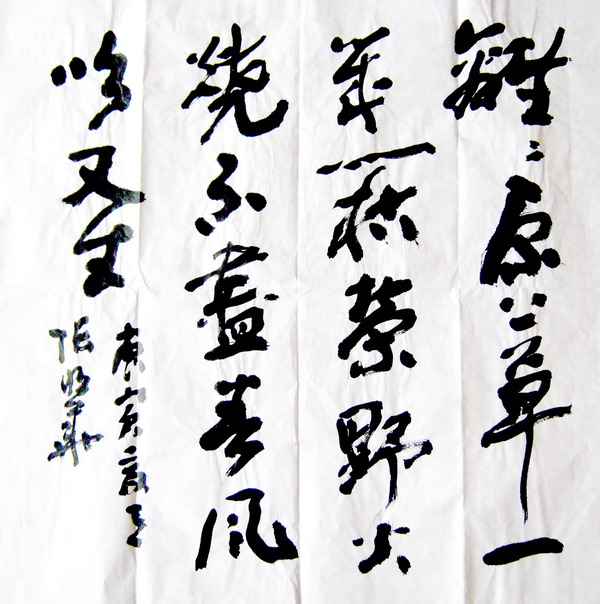 離〻原上草一
歲一枯榮野火
燒不盡春風
吹又生
庚寅